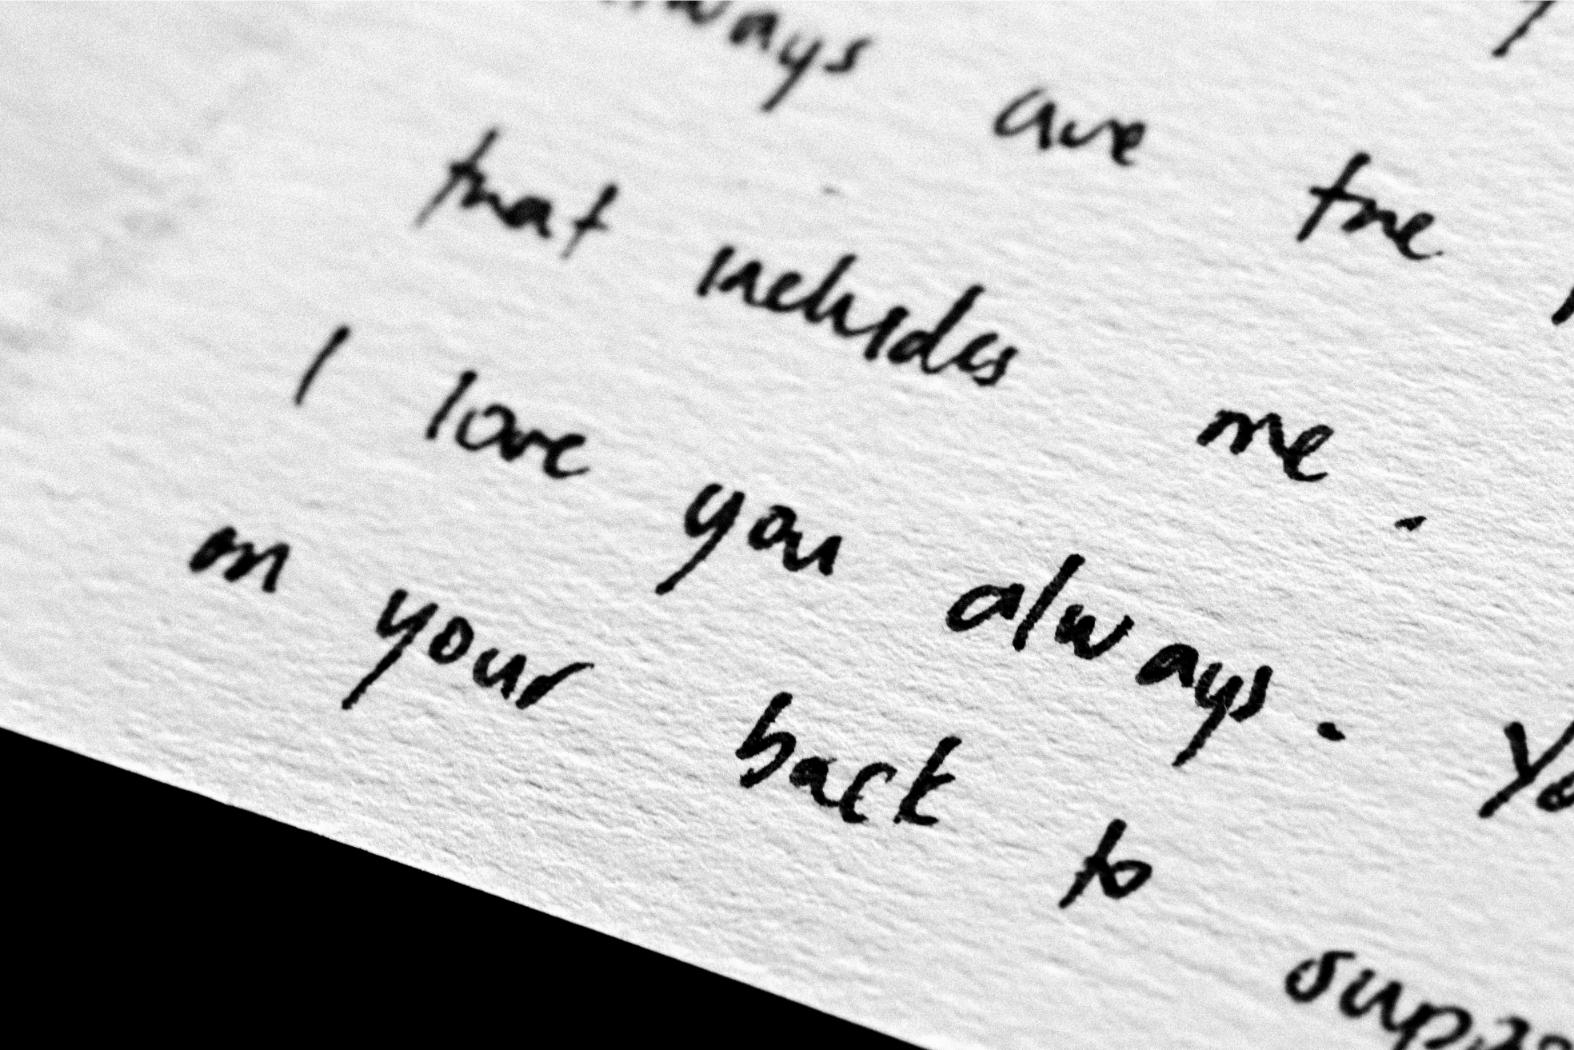 always are the
that includes me.
I love you always. Yo
on your back to supp